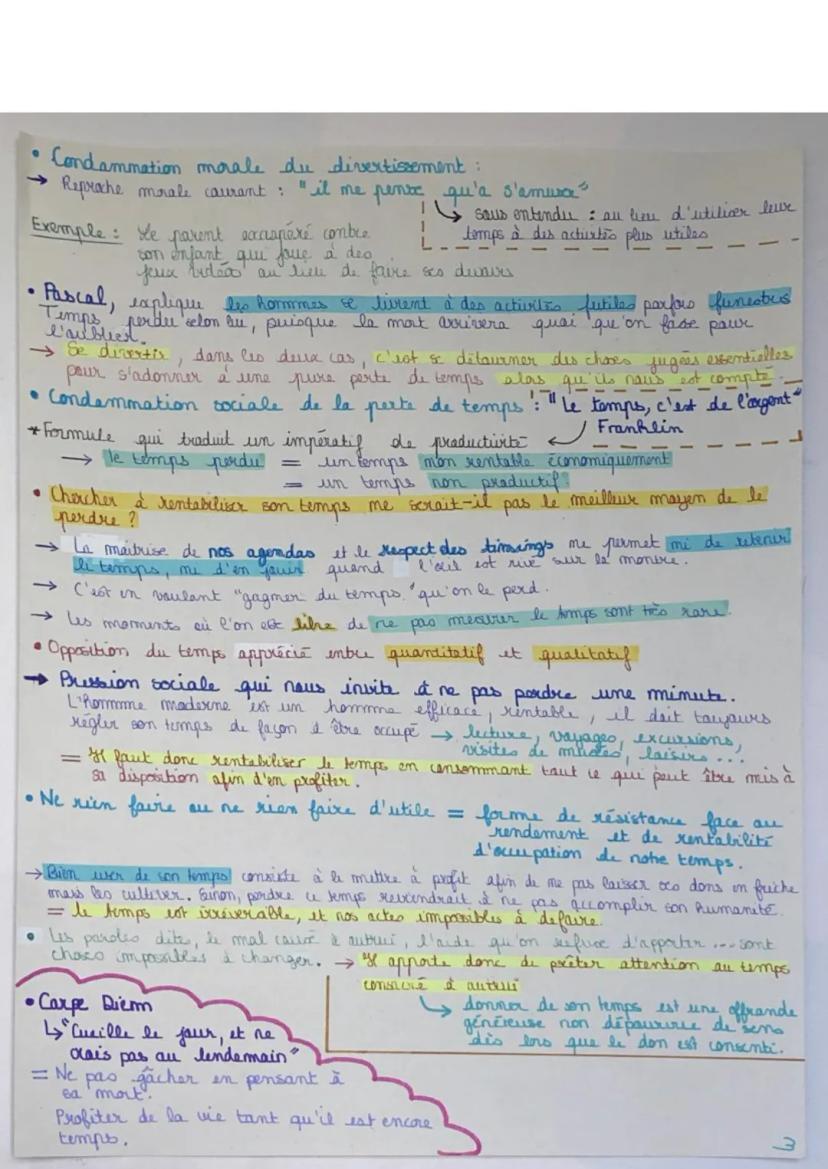 • Condamnation morale du divertissement :
→ Reproche morale courant : "il me pense qu'a s'amuser"
↳ sous entendu : au lieu d'utiliser leur
temps à des activités plus utiles
Exemple : Le parent exaspéré contre
son enfant qui joue à des
jeux vidéos au lieu de faire ses devoirs
• Pascal, explique les hommes se livrent à des activités futiles parfois funestes
Temps perdu selon lui, puisque la mort arrivera quoi qu'on fasse pour
l'oublier.
→ Se divertir, dans les deux cas, c'est se détourner des choses jugées essentielles
pour s'adonner à une pure perte de temps alors qu'ils nous est compté.
• Condamnation sociale de la perte de temps : "Le temps, c'est de l'argent"
Franklin
* Formule qui traduit un impératif de productivité ↙
→ le temps perdu = un temps non rentable économiquement
= un temps non productif.
• Chercher à rentabiliser son temps me serait-il pas le meilleur moyen de le
perdre ?
→ La maîtrise de nos agendas et le respect des timings me permet mi de retenir
le temps, ne d'en jouir quand l'œil est rivé sur la montre.
→ C'est en voulant "gagner du temps" qu'on le perd.
→ Les moments où l'on est libre de ne pas mesurer le temps sont très rare.
• Opposition du temps apprécié entre quantitatif et qualitatif
→ Pression sociale qui nous invite à ne pas perdre une minute.
L'homme moderne est un homme efficace, rentable, il doit toujours
régler son temps de façon à être occupé → lecture, voyages, excursions,
visites de musées, loisirs ...
= Il faut donc rentabiliser le temps en consommant tout ce qui peut être mis à
sa disposition afin d'en profiter.
• Ne rien faire ou ne rien faire d'utile = forme de résistance face au
rendement et de rentabilité
d'occupation de notre temps.
→ Bien user de son temps consiste à le mettre à profit afin de me pas laisser ses dons en friche
mais les cultiver. Sinon, perdre ce temps reviendrait à ne pas accomplir son humanité.
= le temps est irréversible, et nos actes impossibles à défaire.
• Les paroles dite, le mal causé à autrui, l'aide qu'on refuse d'apporter ... sont
choses impossibles à changer. → Il apporte donc de prêter attention au temps
consacré à autrui
↳ donner de son temps est une offrande
généreuse non dépourvue de sens
dès lors que le don est consenti.
• Carpe Diem
↳ "Cueille le jour, et ne
crois pas au lendemain"
= Ne pas gâcher en pensant à
sa mort.
Profiter de la vie tant qu'il est encore
temps.
3